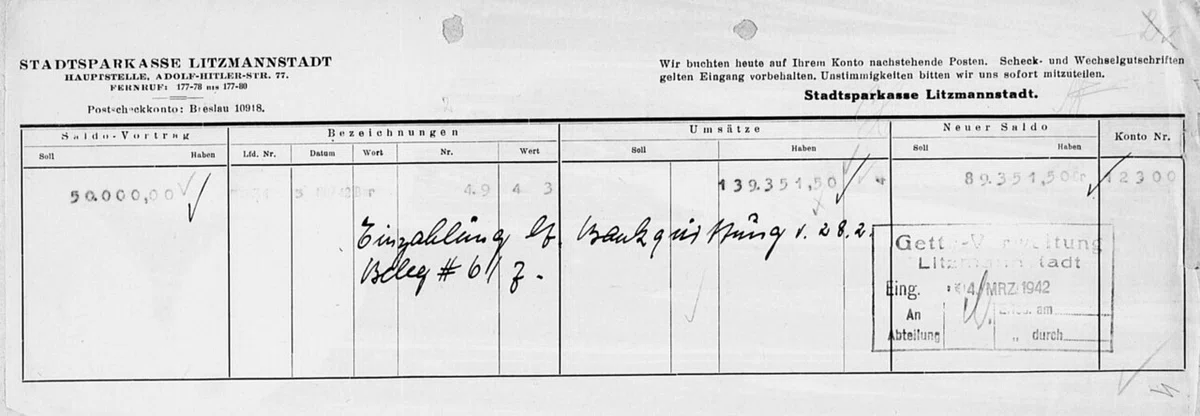 STADTSPARKASSE LITZMANNSTADT
HAUPTSTELLE, ADOLF-HITLER-STR. 77.
FERNRUF: 177-78 BIS 177-80
Postscheckkonto: Breslau 10918.
Wir buchten heute auf Ihrem Konto nachstehende Posten. Scheck- und Wechselgutschriften
gelten Eingang vorbehalten. Unstimmigkeiten bitten wir uns sofort mitzuteilen.
Stadtsparkasse Litzmannstadt.
Saldo-Vortrag Bezeichnungen Umsätze Neuer Saldo Konto Nr.
Soll Haben Lfd. Nr. Datum Wort Nr. Wert Soll Haben Soll Haben
50.000,00 4.9 4 3 139.351,50 89.351,50 12300
Einzahlung lt. Bankquittung v. 28.2.
Beleg # 61 z.
Getto-Verwaltung
Litzmannstadt
Eing. 4. MRZ 1942
An
Abteilung
Erled. am
„ durch